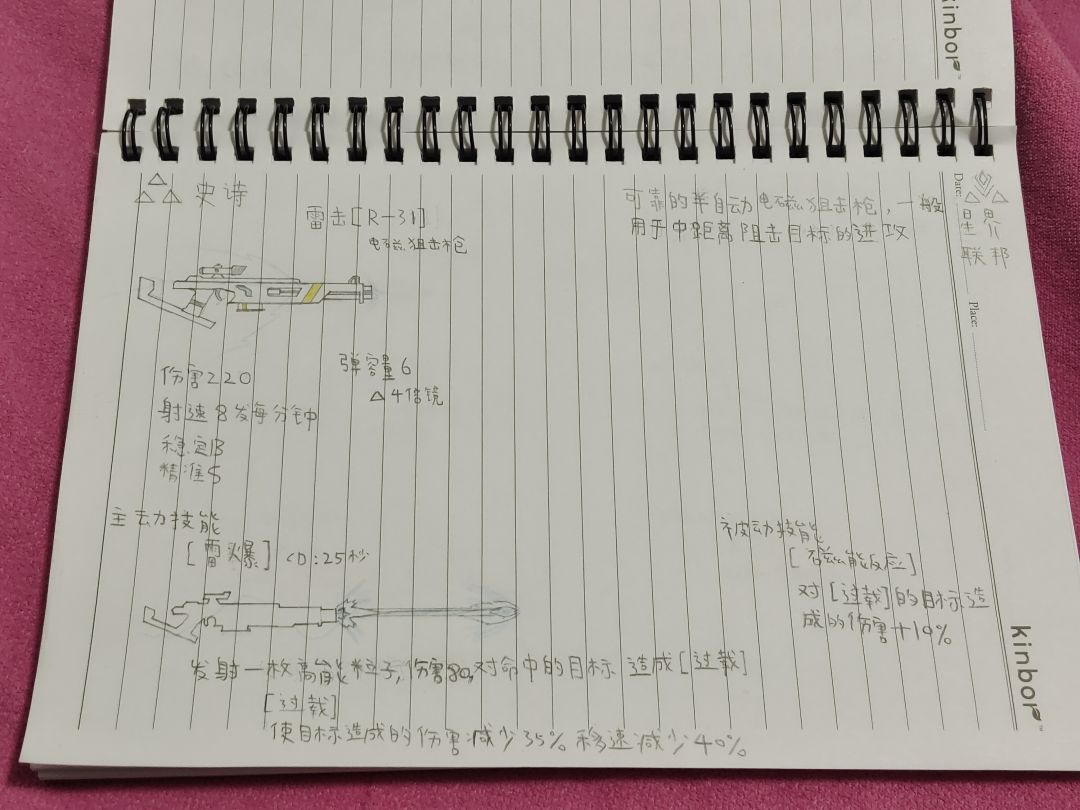 kinbor
Date:
Place:
史诗
雷击[R-31]
电磁狙击枪
可靠的半自动电磁狙击枪，一般
用于中距离阻击目标的进攻
星界
联邦
伤害220
弹容量6
△4倍镜
射速8发每分钟
稳定B
精准S
主动技能
[雷爆] CD:25秒
被动技能
[磁能反应]
对[过载]的目标造
成的伤害+10%
发射一枚高能粒子,伤害80,对命中的目标造成[过载]
[过载]
使目标造成的伤害减少35% 移速减少40%
kinbor